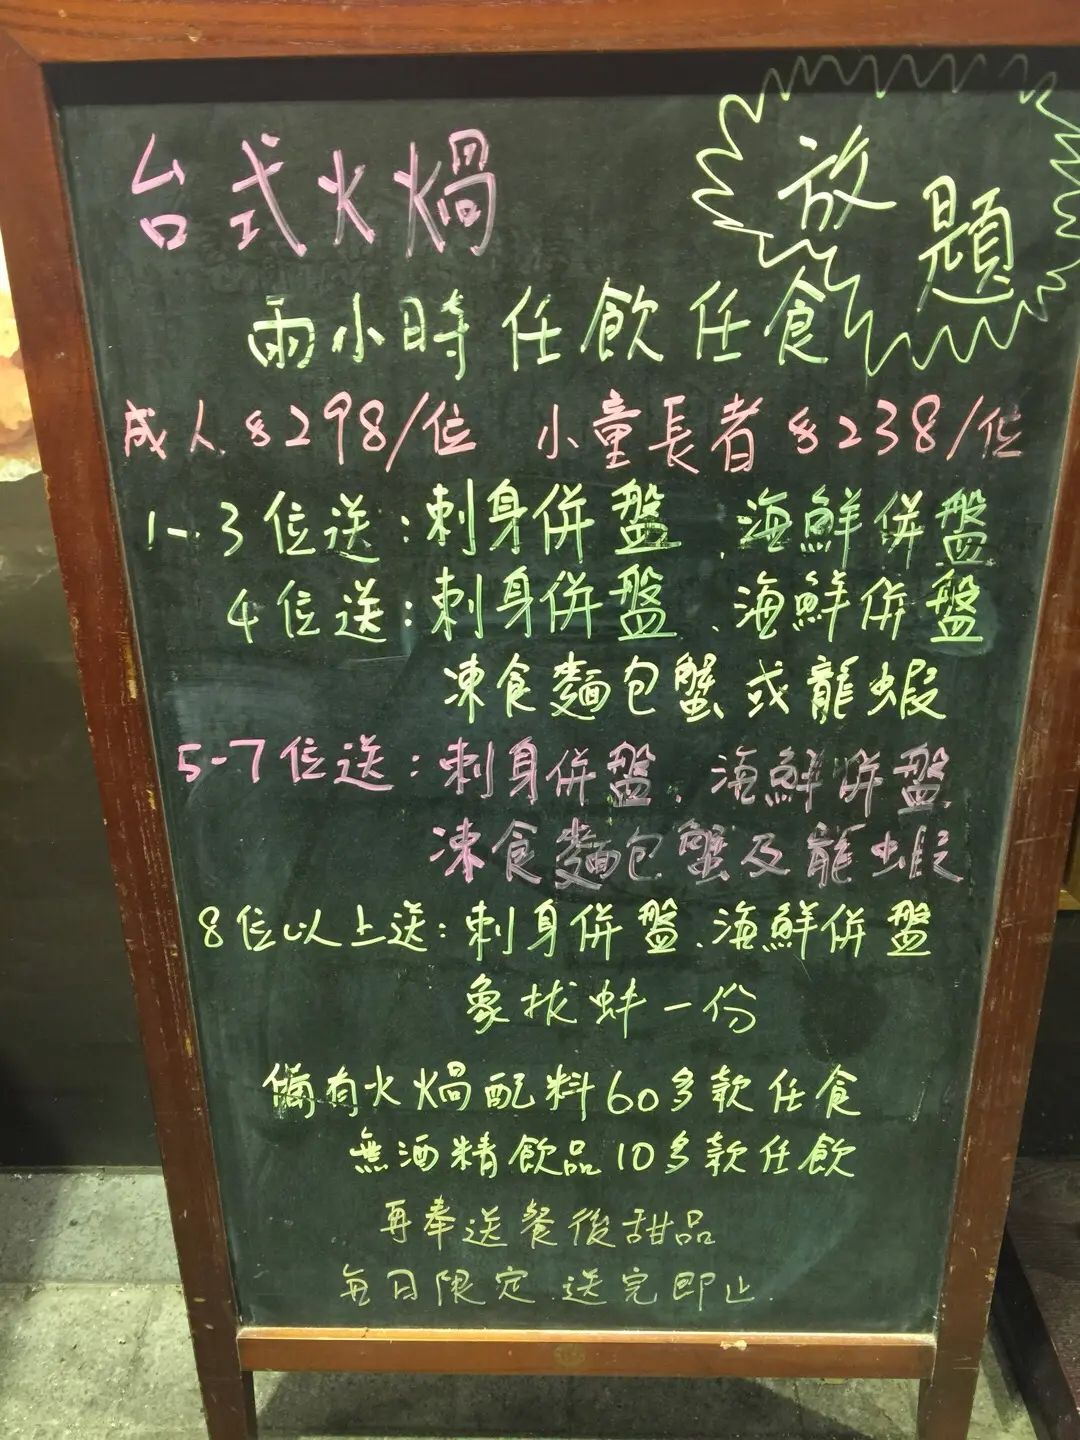 台式火焗
放題
兩小時任飲任食
成人$298/位 小童長者$238/位
1-3位送:刺身併盤、海鮮併盤
4位送:刺身併盤、海鮮併盤
凍食麵包蟹或龍蝦
5-7位送:刺身併盤、海鮮併盤
凍食麵包蟹及龍蝦
8位以上送:刺身併盤、海鮮併盤
象拔蚌一份
備有火煱配料60多款任食
無酒精飲品10多款任飲
再奉送餐後甜品
每日限定 送完即止